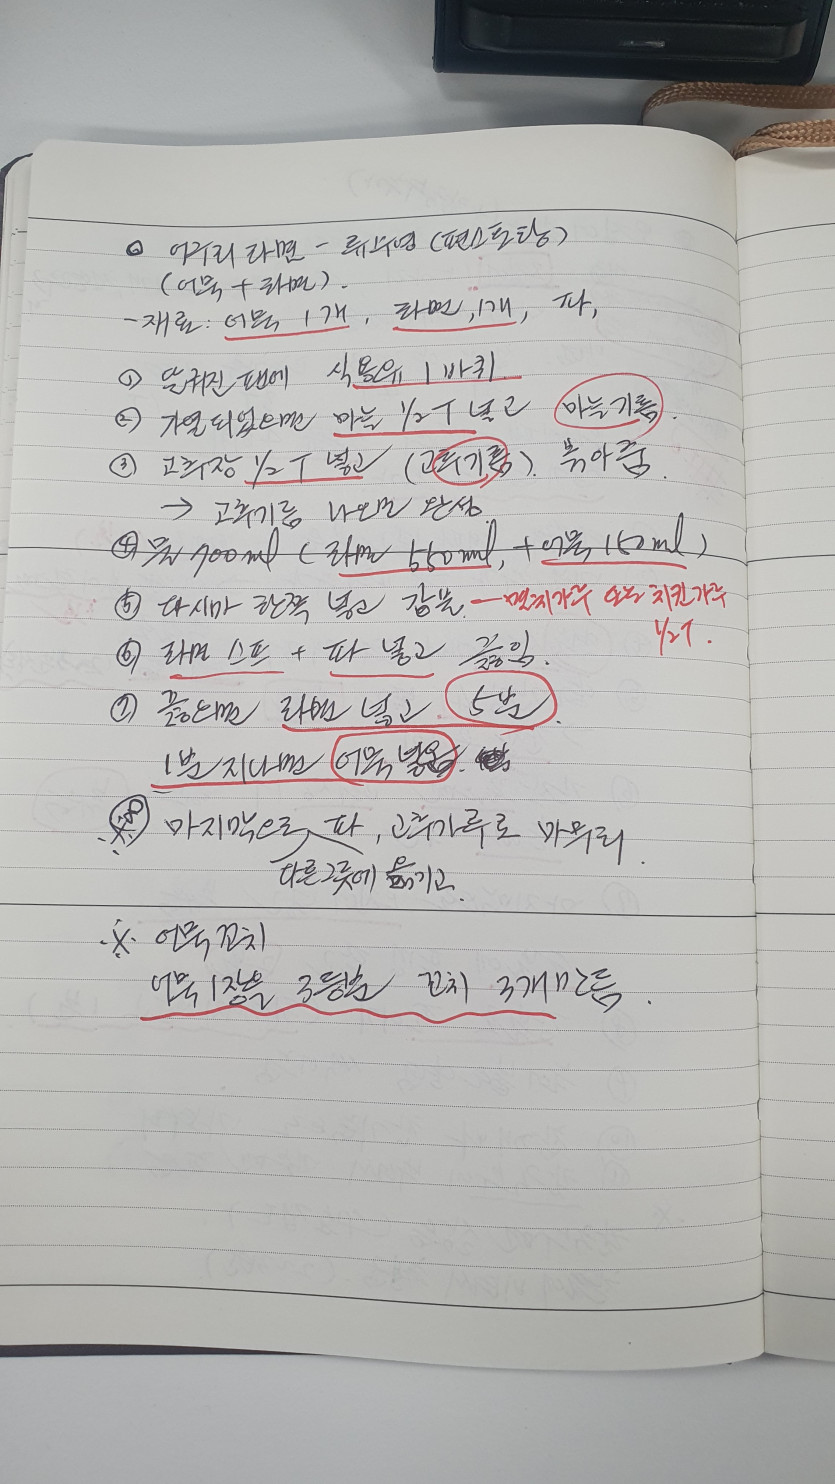 어구리 라면 - 류수영 (편스토랑)
(어묵 + 라면).
- 재료 : 어묵 1개, 라면, 1개, 파,
① 달궈진 팬에 식용유 1바퀴
② 가열되었으면 마늘 1/2T 넣고 마늘기름.
③ 고추장 1/2T 넣고 (고추기름) 볶아줌.
→ 고추기름 나오면 완성.
④ 물 700ml (라면 550ml, + 어묵 150ml)
⑤ 다시마 한쪽 넣고 강불. - 멸치가루 또는 치킨가루
1/2T.
⑥ 라면 스프 + 파 넣고 끓임.
⑦ 끓으면 라면 넣고 5분.
1분 지나면 어묵 넣음.
※ 마지막으로 파, 고추가루로 마무리.
다른 그릇에 옮기고.
※ 어묵꼬치
어묵 1장을 3등분 꼬치 3개 만듬.